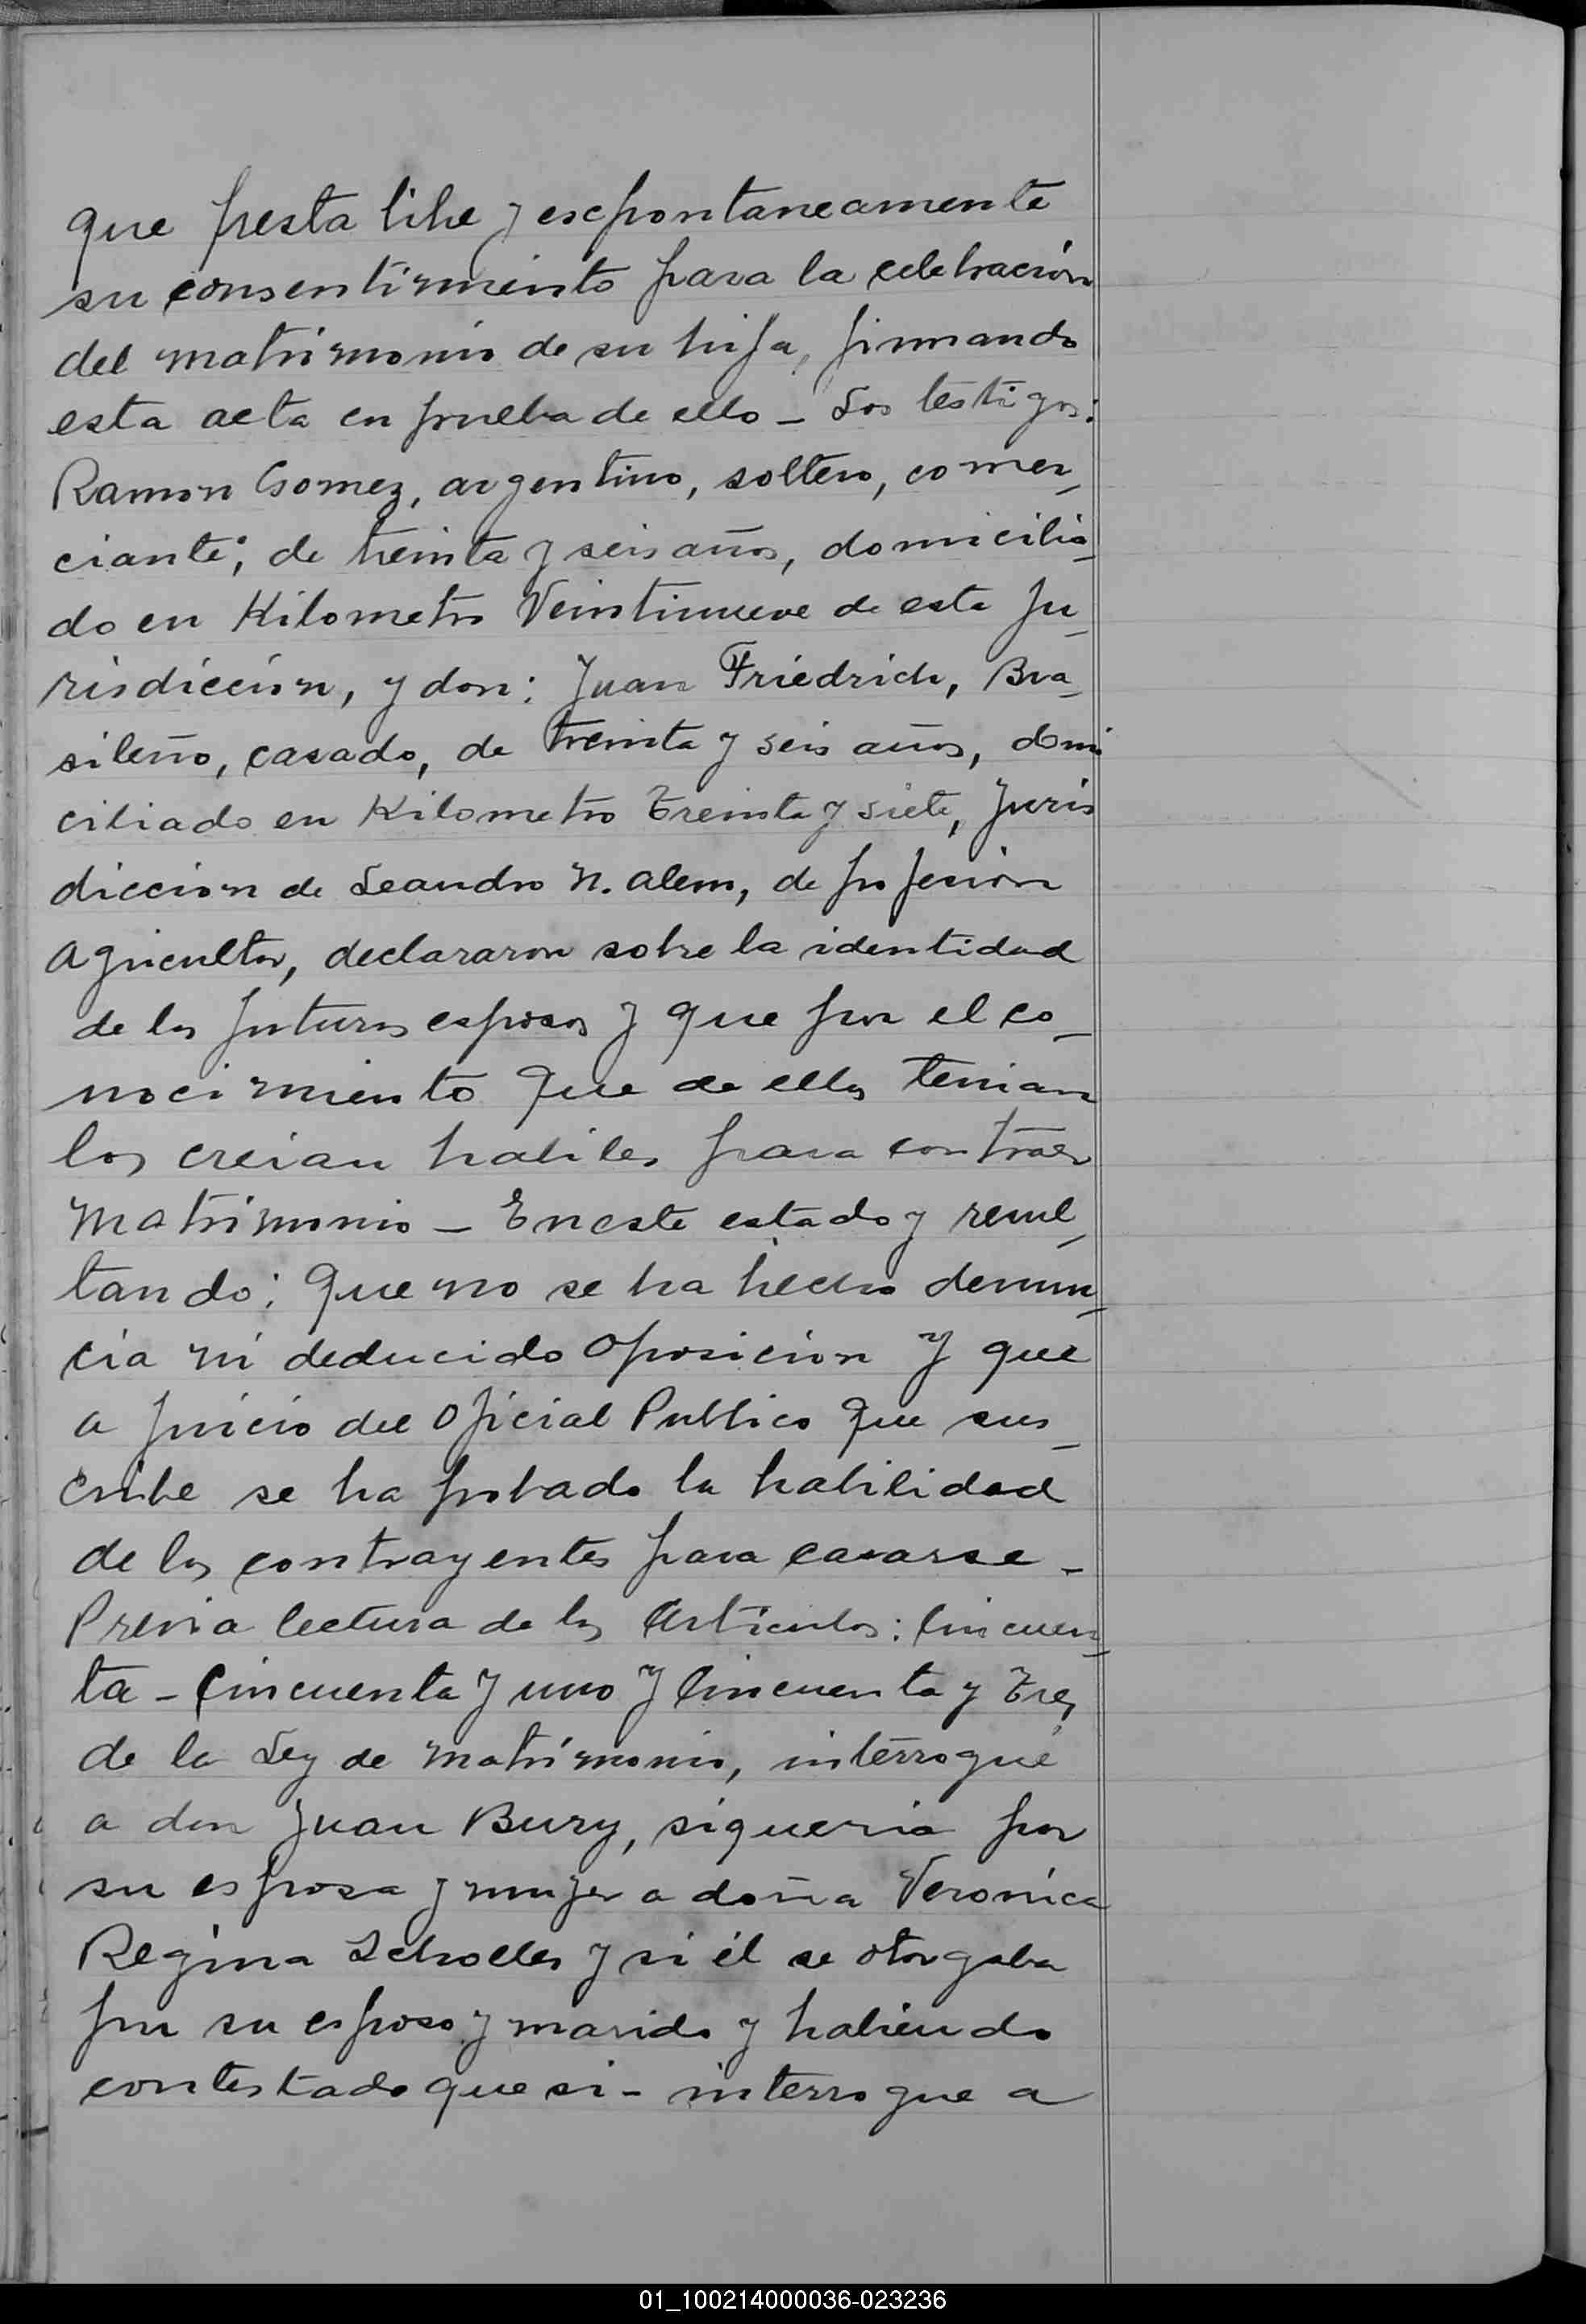 que presta libre y escpontaneamente
su consentimiento para la celebración
del matrimonio de su hija, firmando
esta acta en prueba de ello - Los testigos:
Ramon Gomez, argentino, soltero, comer_
ciante; de treinta y seis años, domicilia_
do en Kilometro Veintinueve de esta ju_
risdiccion, y don: Juan Friedrich, Bra_
sileño, casado, de treinta y seis años, domi
ciliado en Kilometro Treinta y siete, juris
diccion de Leandro N. Alem, de profesion
Agricultor, declararon sobre la identidad
de los futuros esposos y que por el co_
nocimiento que de ellos tenian
los creian habiles para contraer
Matrimonio - En este estado y resul_
tando: Que no se ha hecho denun_
cia ni deducido oposicion y que
a juicio del Oficial Publico que sus_
cribe se ha probado la habilidad
de los contrayentes para casarse -
Previa lectura de los Articulos: Cincuen_
ta - Cincuenta y uno y Cincuenta y Tres
de la Ley de Matrimonio, interrogué
a don Juan Bury, si queria por
su esposa y mujer a doña Veronica
Regina Scholles y si él se otorgaba
por su esposo y marido y habiendo
contestado que si - interrogue a
01_100214000036-023236